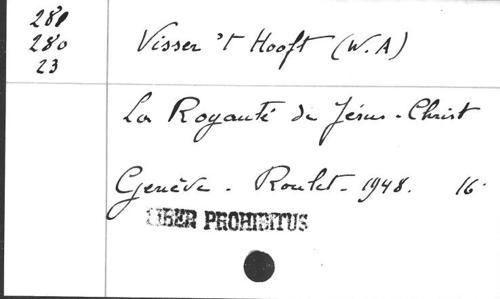 281
280
23
Visser 't Hooft (W.A)
La Royauté de Jésus-Christ
Genève - Roulet - 1948. 16°
LIBER PROHIBITUS